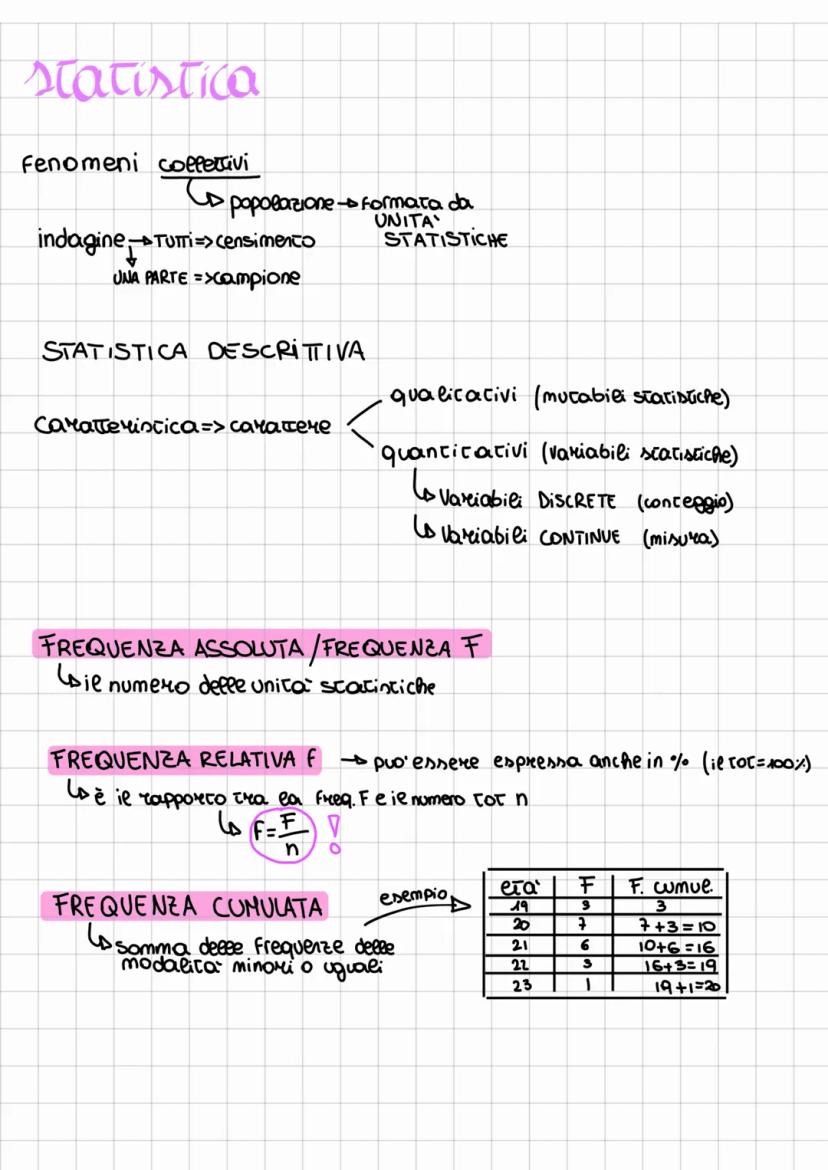 statistica
Fenomeni collettivi
↳ popolazione → formata da
UNITA'
indagine → TUTTI => censimento STATISTICHE
↓
UNA PARTE => campione
STATISTICA DESCRITTIVA
qualitativi (mutabili statistiche)
Caratteristica => carattere
quantitativi (variabili statistiche)
↳ Variabili DISCRETE (conteggio)
↳ Variabili CONTINUE (misura)
FREQUENZA ASSOLUTA/FREQUENZA F
↳ il numero delle unita' statistiche
FREQUENZA RELATIVA f → puo' essere espressa anche in % (il tot=100%)
↳ è il rapporto tra la freq. F e il numero tot n
↳ f = F/n !
FREQUENZA CUMULATA esempio →
↳ somma delle frequenze delle
modalita' minori o uguali
età' F F. cumul.
19 3 3
20 7 7+3=10
21 6 10+6=16
22 3 16+3=19
23 1 19+1=20